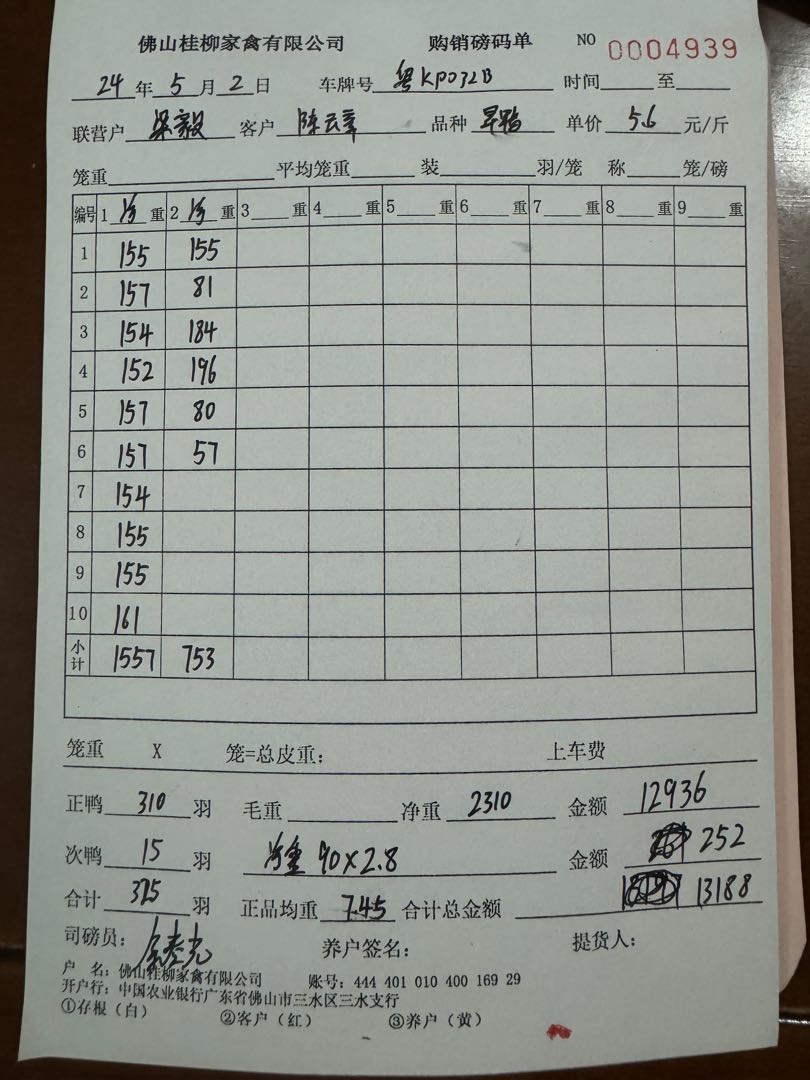 佛山桂柳家禽有限公司 购销磅码单 NO 0004939
24年5月2日 车牌号 粤KP032B 时间 至
联营户 梁毅 客户 陈云章 品种 旱鸭 单价 5.6 元/斤
笼重 平均笼重 装 羽/笼 称 笼/磅
编号 1 净 重 2 净 重 3 重 4 重 5 重 6 重 7 重 8 重 9 重
1 155 155
2 157 81
3 154 184
4 152 196
5 157 80
6 157 57
7 154
8 155
9 155
10 161
小计 1557 753
笼重 X 笼=总皮重： 上车费
正鸭 310 羽 毛重 净重 2310 金额 12936
次鸭 15 羽 净重 90×2.8 金额 252
合计 325 羽 正品均重 7.45 合计总金额 13188
司磅员： 养户签名： 提货人：
户 名：佛山桂柳家禽有限公司 账号：444 401 010 400 169 29
开户行：中国农业银行广东省佛山市三水区三水支行
①存根（白） ②客户（红） ③养户（黄）